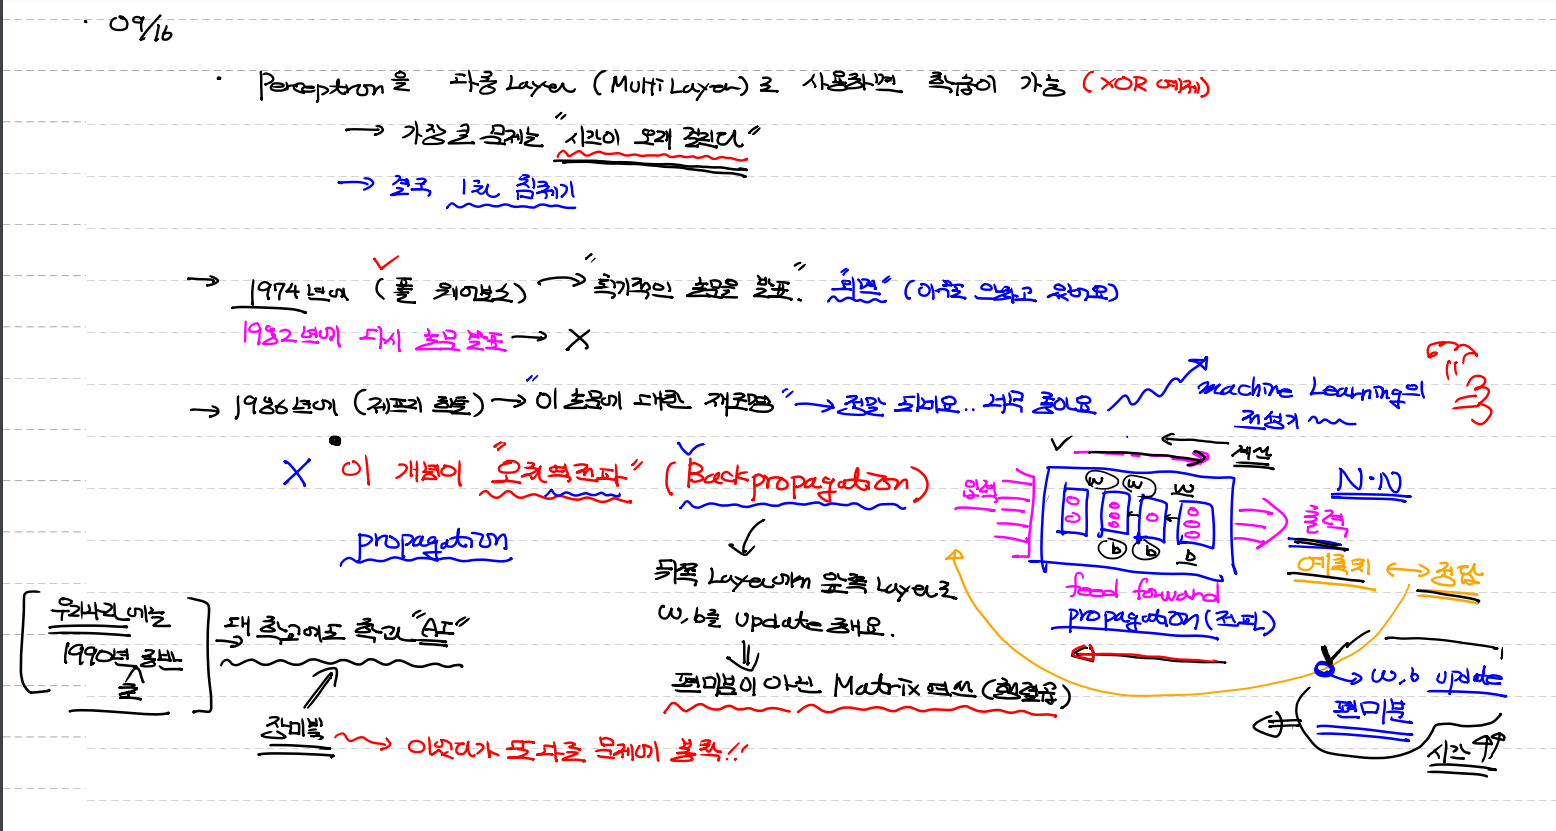 · 09/16
· Perceptron을 다중 Layer (Multi Layer)로 사용하면 학습이 가능 (XOR 예제)
→ 가장 큰 문제는 "시간이 오래 걸린다"
→ 결국 1차 침체기
→ 1974년에 (폴 워보스) → "획기적인 논문을 발표." "외면" (아무도 안하고 있어요)
1982년에 다시 논문 발표 → X
→ 1986년에 (제프리 힌톤) → "이 논문에 대한 재조명" → 정말 되네요.. 너무 좋아요
machine Learning의
전성기
X 이 개념이 "오차역전파" (Backpropagation)
propagation
뒤쪽 Layer에서 앞쪽 Layer로
w, b를 update 해요.
편미분이 아닌 Matrix 연산 (행렬곱)
계산
입력
w w w
b b b
N·N
출력
feed forward
propagation (전파)
예측치 ↔ 정답
→ w, b update
편미분
시간 ↑↑
우리나라에는
1990년 중반
초
→ 대학교에도 학과 "AI"
장미빛
→ 이러다가 또 다른 문제에 봉착!!